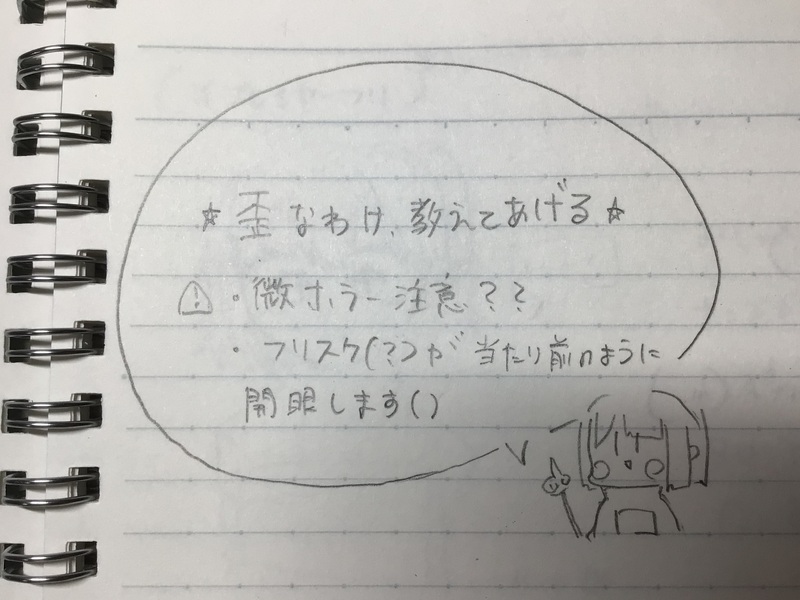 ☆歪なわけ、教えてあげる☆
⚠・微ホラー注意??
・フリスク(?)が当たり前のように
開眼します()